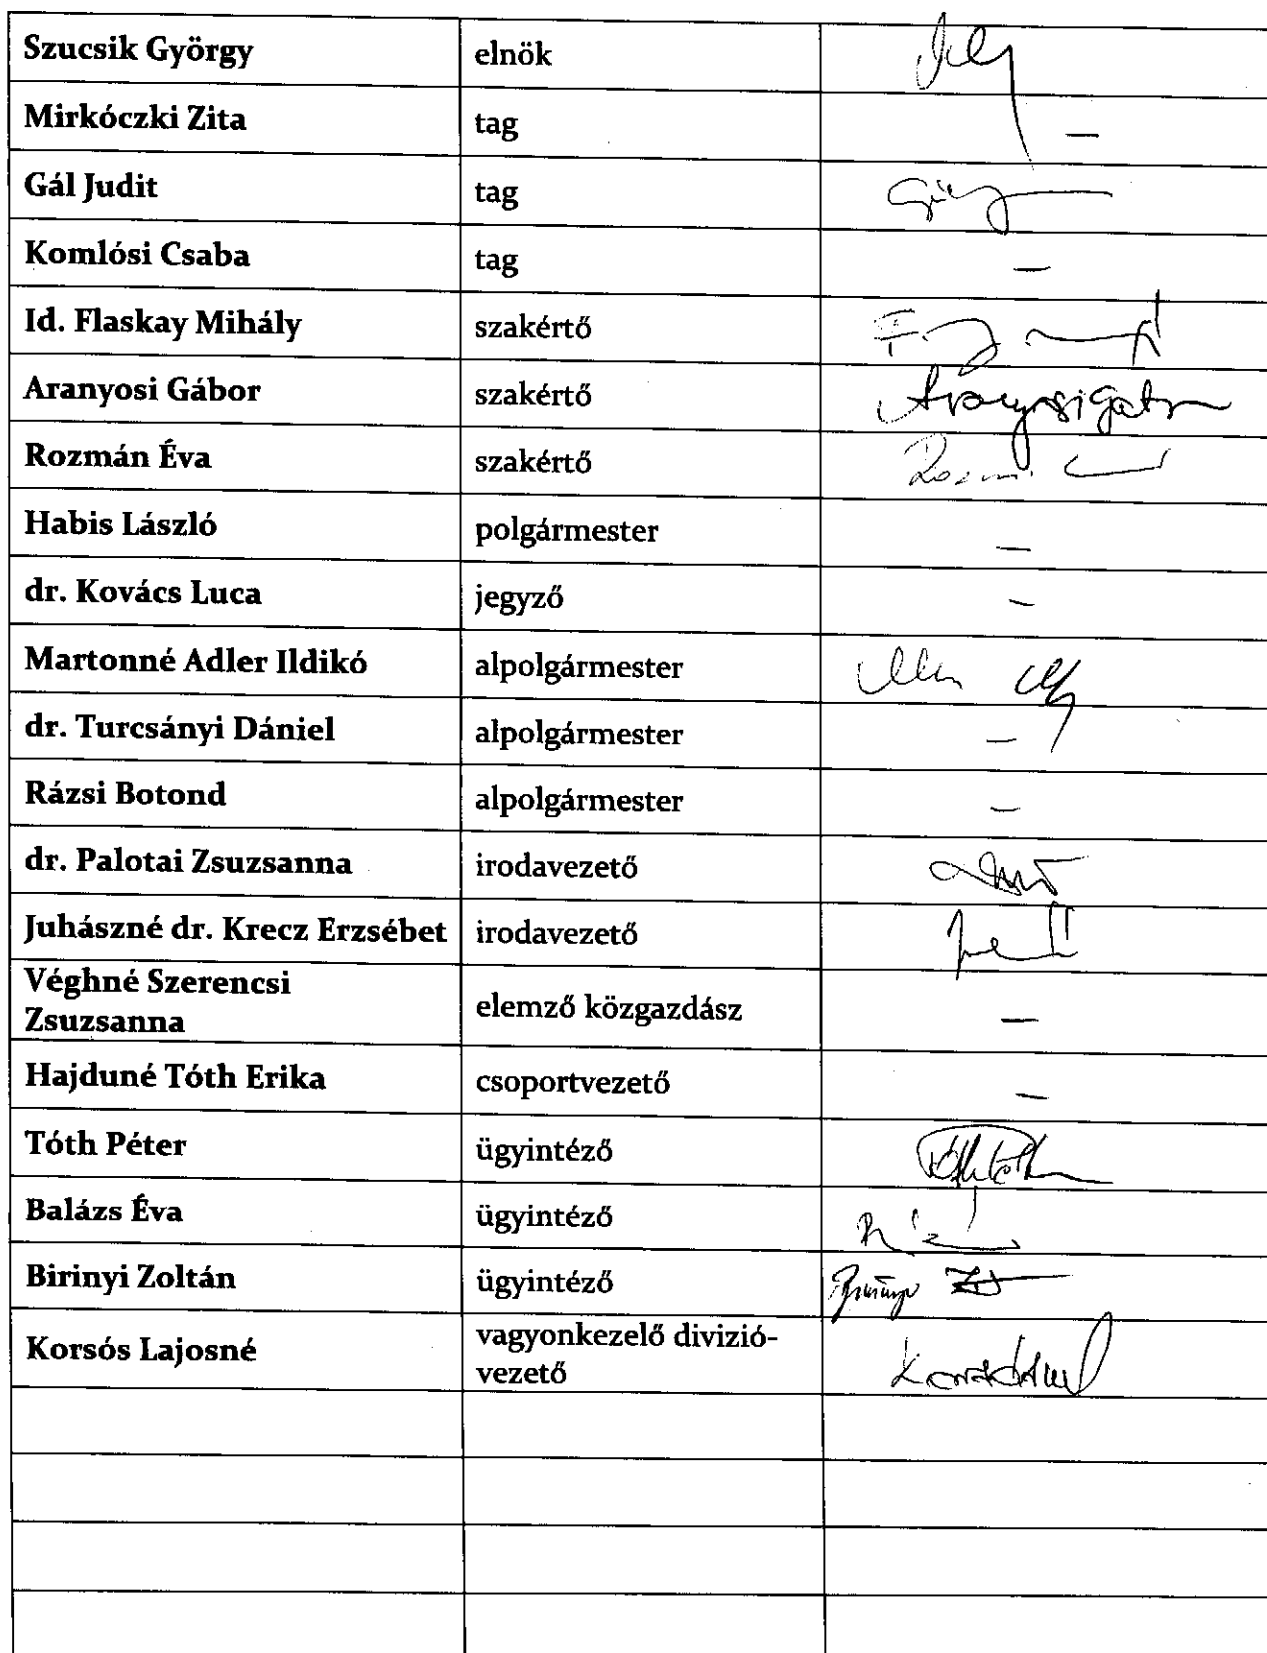 Szucsik György elnök
Mirkóczki Zita tag —
Gál Judit tag
Komlósi Csaba tag —
Id. Flaskay Mihály szakértő
Aranyosi Gábor szakértő Aranyosi Gábor
Rozmán Éva szakértő
Habis László polgármester —
dr. Kovács Luca jegyző —
Martonné Adler Ildikó alpolgármester
dr. Turcsányi Dániel alpolgármester —
Rázsi Botond alpolgármester —
dr. Palotai Zsuzsanna irodavezető
Juhászné dr. Krecz Erzsébet irodavezető
Véghné Szerencsi
Zsuzsanna elemző közgazdász —
Hajduné Tóth Erika csoportvezető —
Tóth Péter ügyintéző
Balázs Éva ügyintéző
Birinyi Zoltán ügyintéző
Korsós Lajosné vagyonkezelő divizió-
vezető